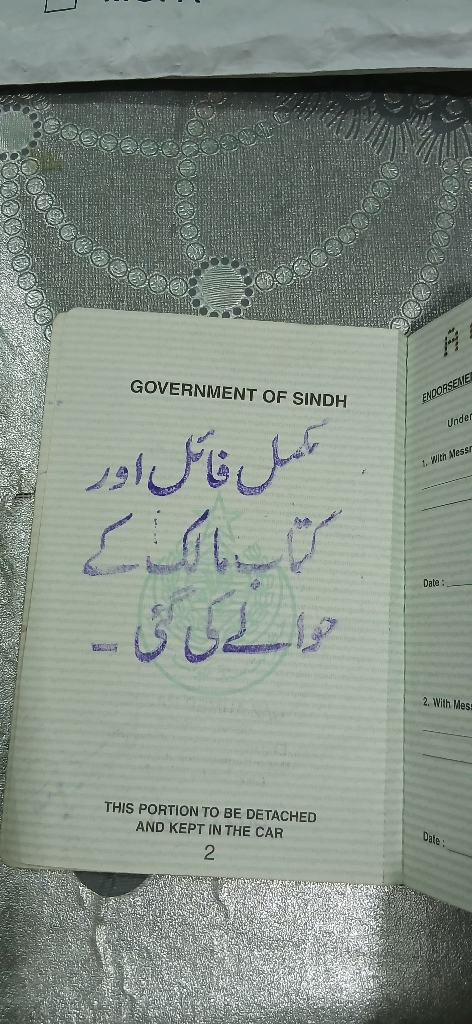 GOVERNMENT OF SINDH
مکمل فائل اور
کتاب مالک کے
حوالے کی گئی ۔
THIS PORTION TO BE DETACHED
AND KEPT IN THE CAR
2
A
Under
1. With
Date :
2. With
Date :